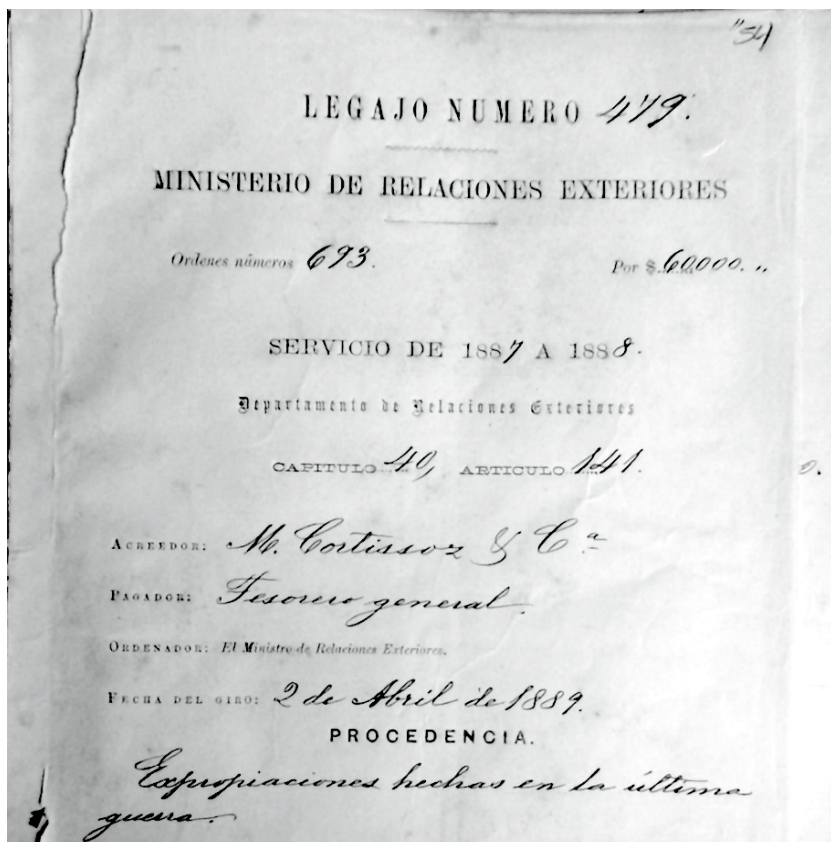 "54
LEGAJO NUMERO 479.
MINISTERIO DE RELACIONES EXTERIORES
Ordenes números 693. Por $ 60000. "
SERVICIO DE 1887 A 1888.
Departamento de Relaciones Exteriores
CAPITULO 40, ARTICULO 141.
ACREEDOR: M. Cortissoz & Cª
PAGADOR: Tesorero general.
ORDENADOR: El Ministro de Relaciones Exteriores.
FECHA DEL GIRO: 2 de Abril de 1889.
PROCEDENCIA.
Expropiaciones hechas en la última
guerra.